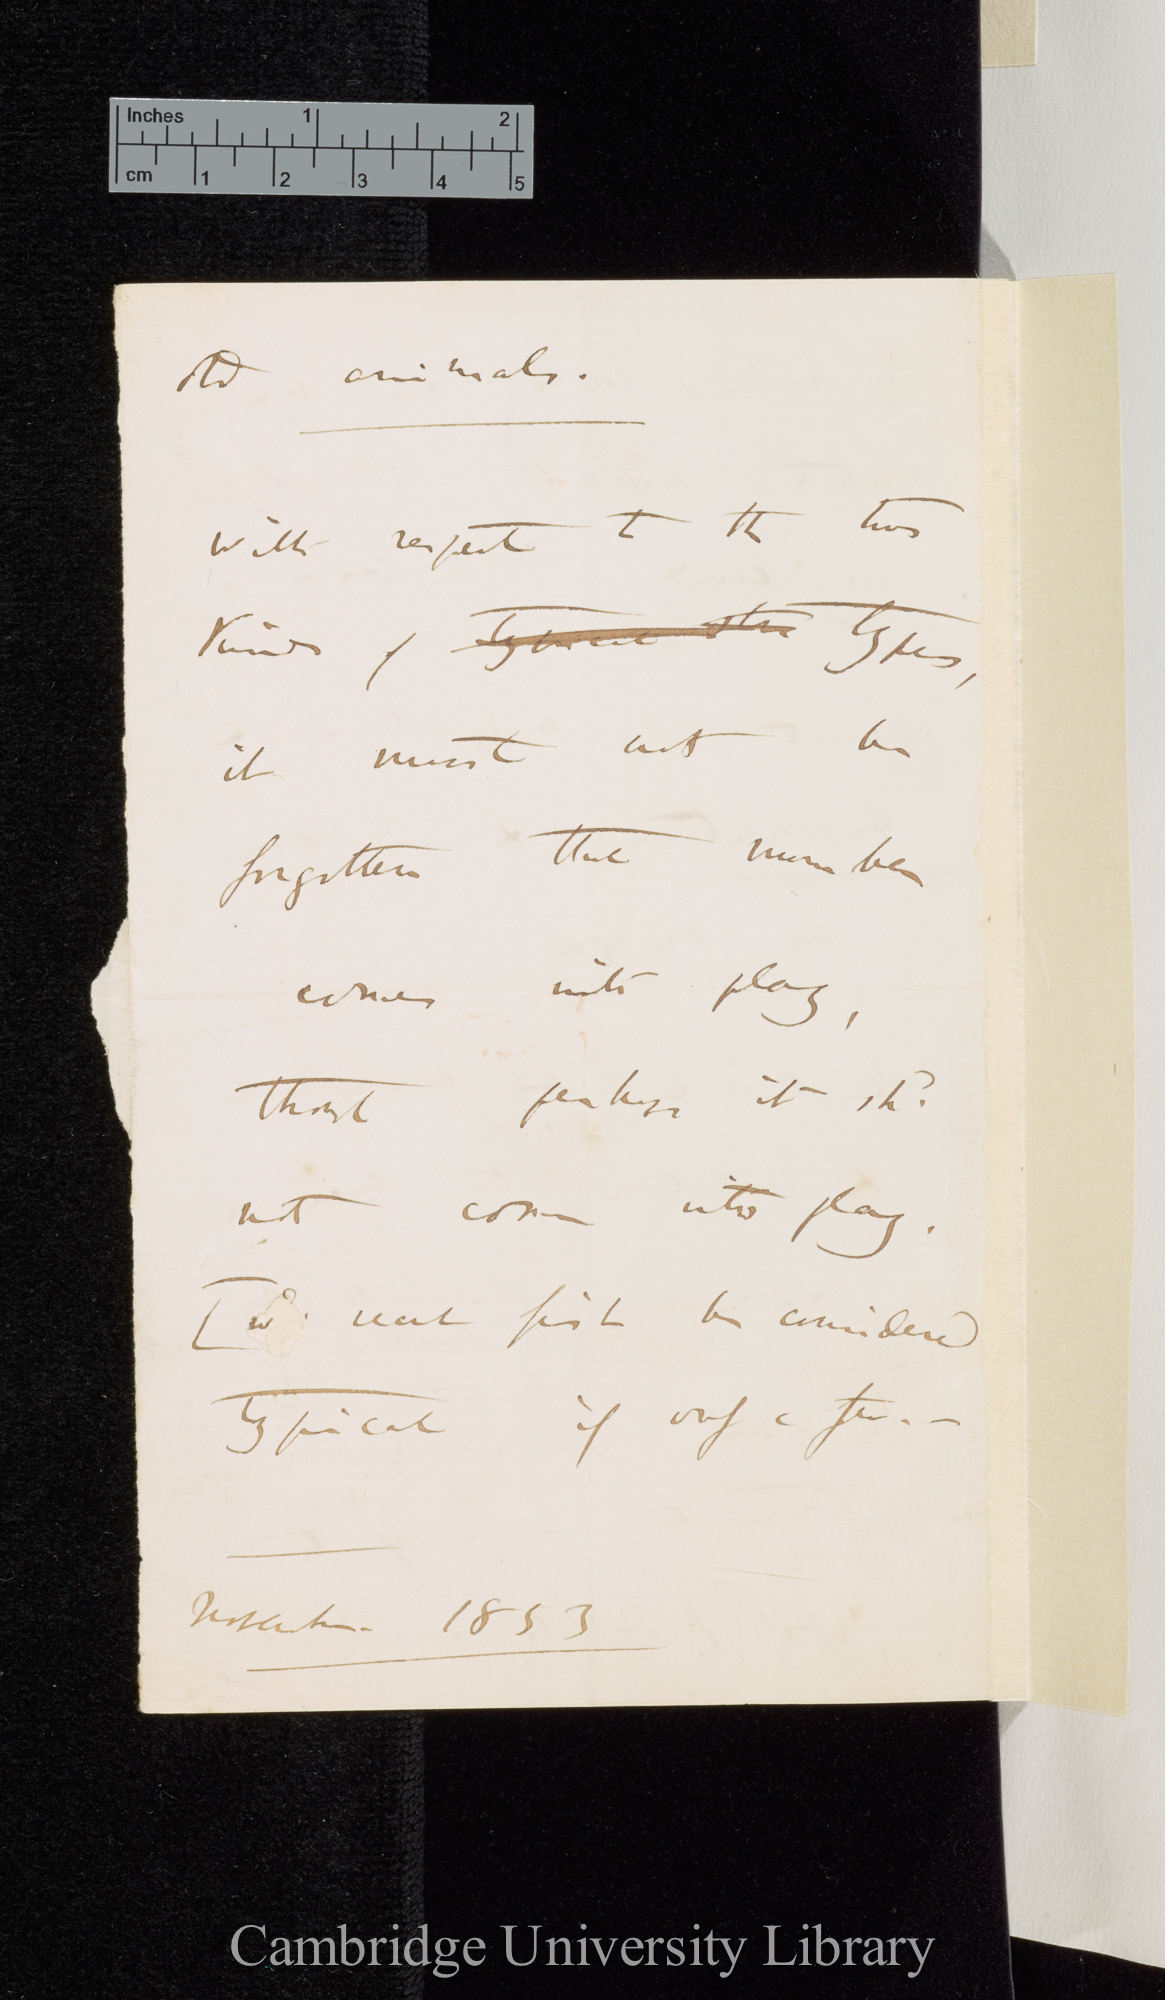 Inches 1 2
cm 1 2 3 4 5
old animals.
With respect to the two
Kinds of typical stru types,
it must not be
forgotten that number
comes into play,
though perhaps it shd
not come into play.
[Wd. first be considered
typical if only a few. —
November 1853
Cambridge University Library